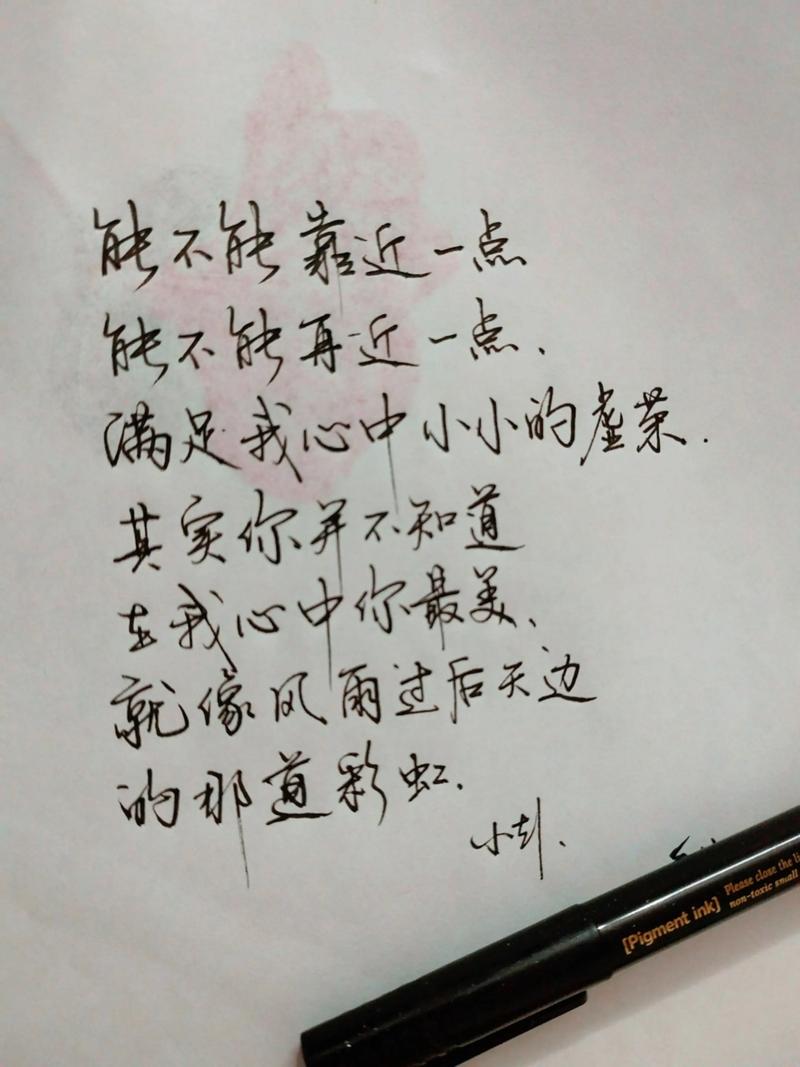 能不能靠近一点
能不能再近一点.
满足我心中小小的虚荣.
其实你并不知道
在我心中你最美.
就像风雨过后天边
的那道彩虹.
[Pigment ink]
Please close the li
non-toxic small